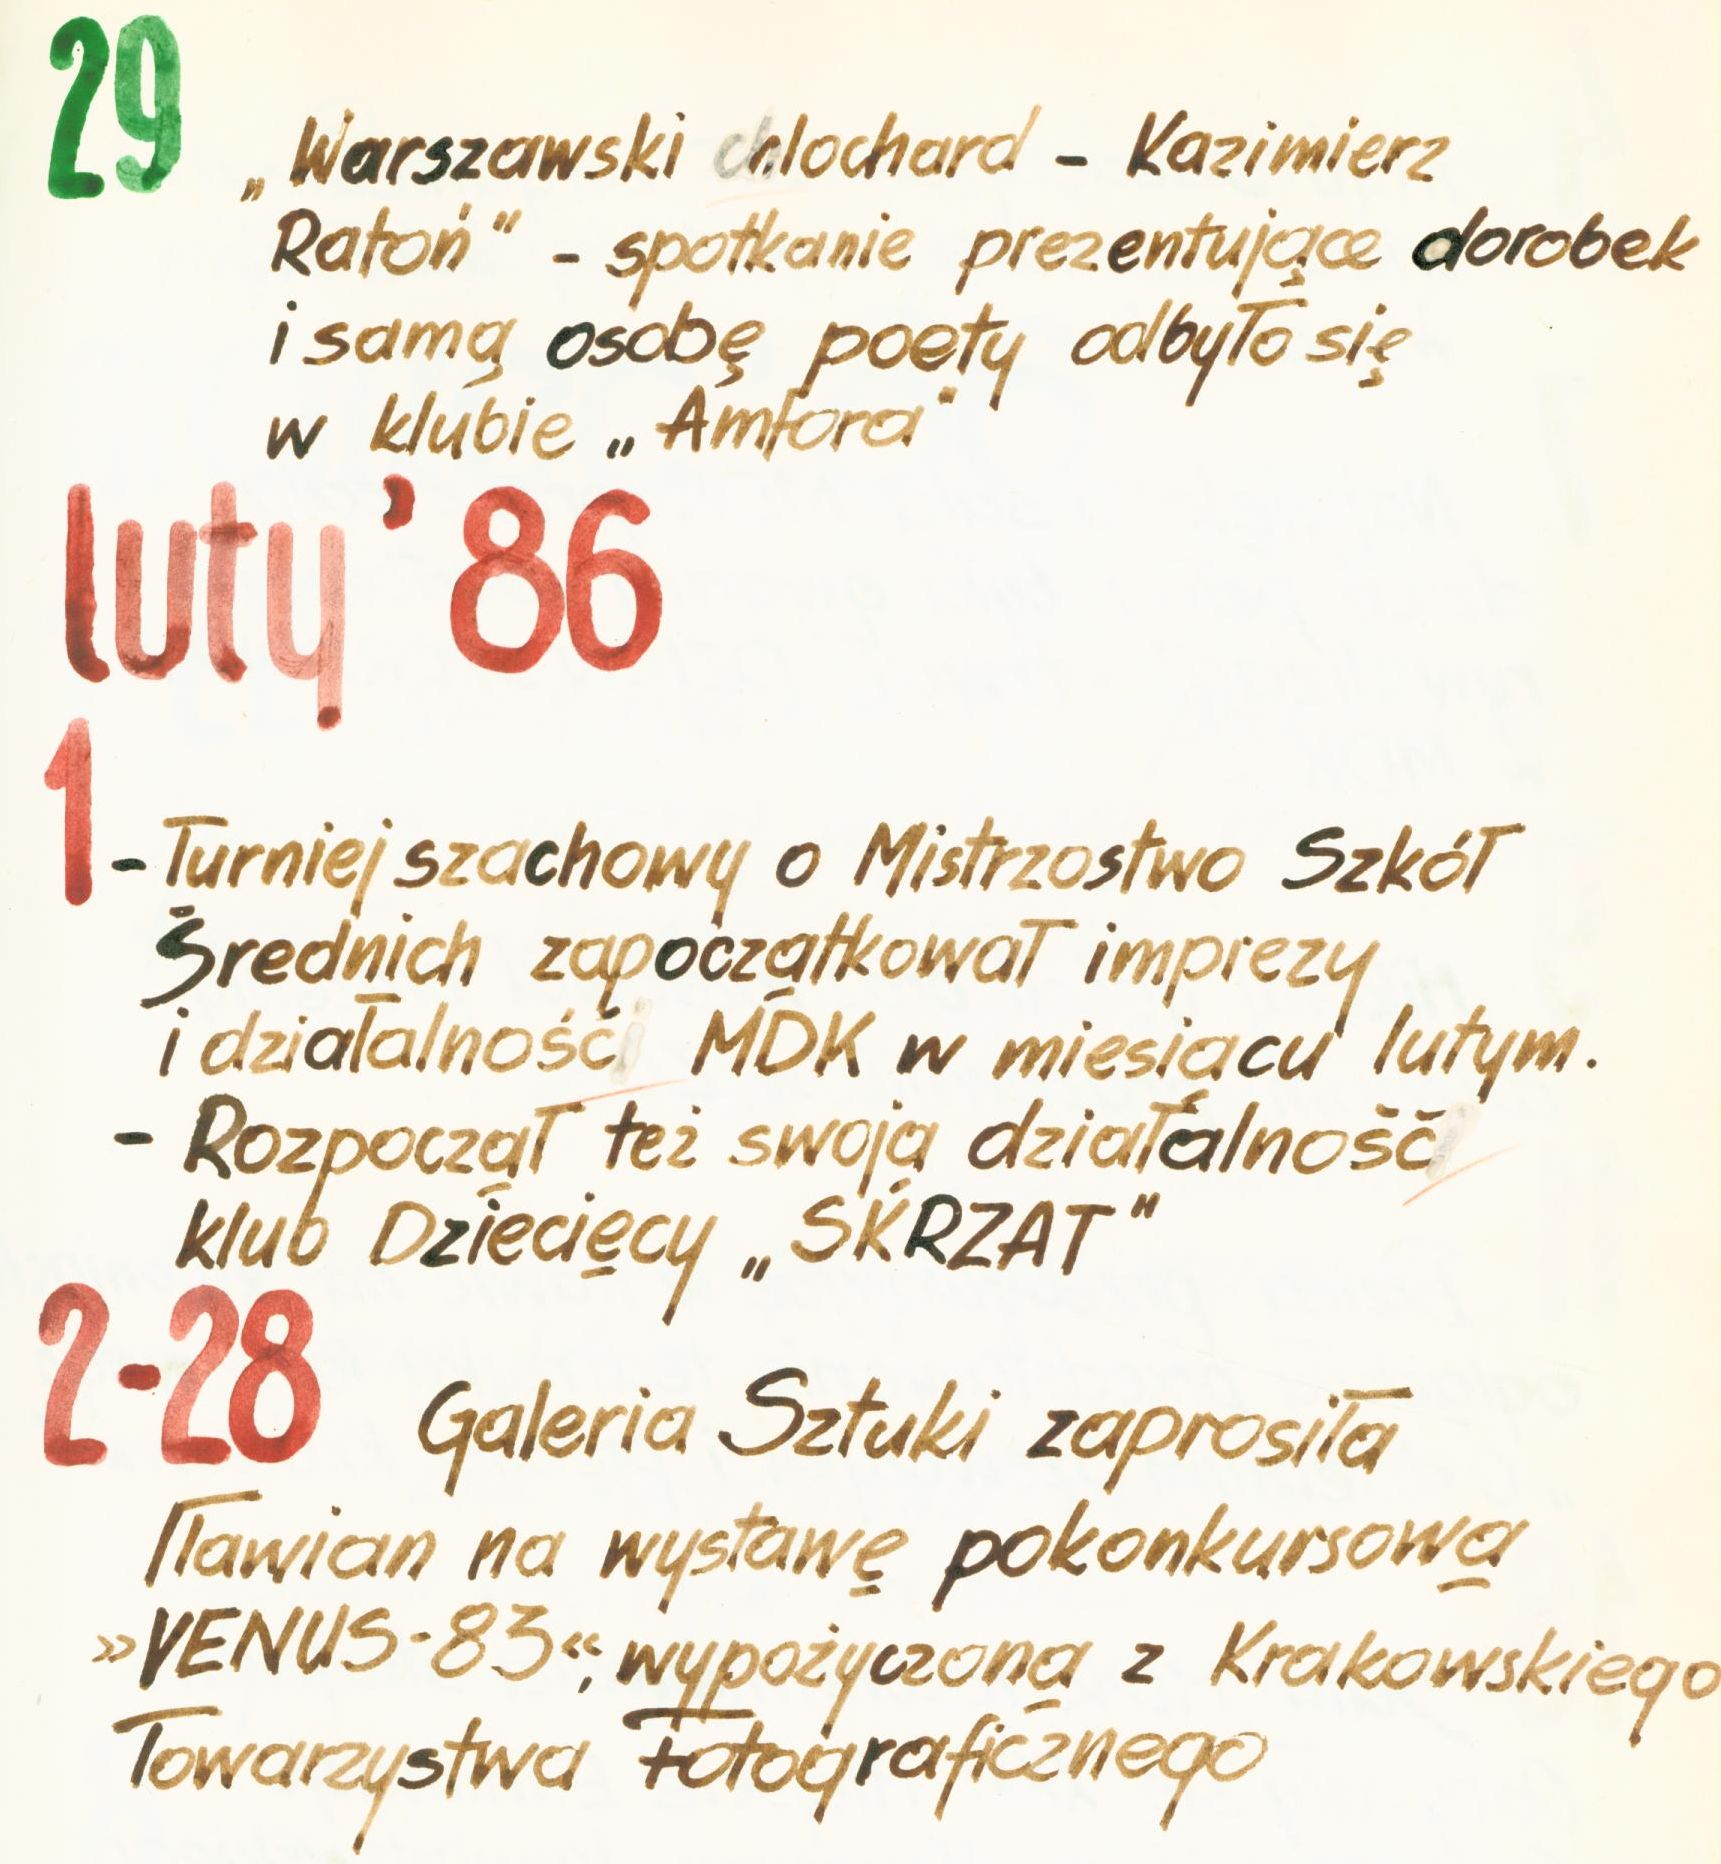 29
„Warszawski chlochard - Kazimierz
Ratoń" - spotkanie prezentujące dorobek
i samą osobę poety odbyło się
w klubie „Amfora"
luty '86
1
- Turniej szachowy o Mistrzostwo Szkół
Średnich zapoczątkował imprezy
i działalność MDK w miesiącu lutym.
- Rozpoczął też swoją działalność
klub Dziecięcy „SKRZAT"
2-28 Galeria Sztuki zaprosiła
Iławian na wystawę pokonkursową
»VENUS-83«, wypożyczoną z Krakowskiego
Towarzystwa Fotograficznego